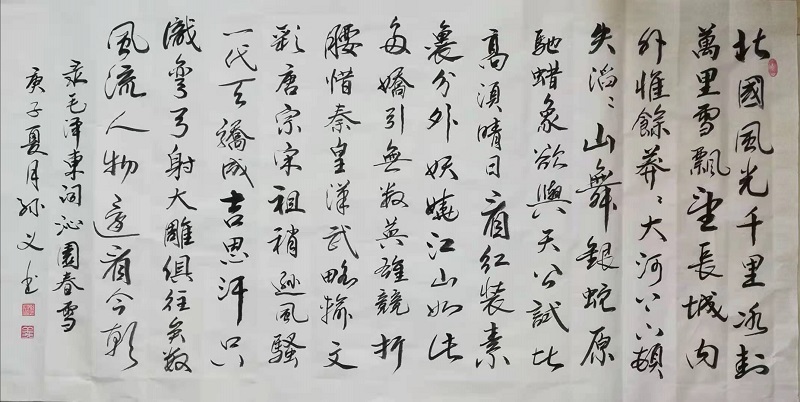 北國風光千里冰封
萬里雪飄望長城内
外惟餘莽〻大河上下頓
失滔〻山舞銀蛇原
馳蜡象欲與天公試比
高須晴日看红装素
裹分外妖嬈江山如此
多嬌引無数英雄競折
腰惜秦皇漢武略输文
彩唐宗宋祖稍逊風騷
一代天驕成吉思汗只
識弯弓射大雕俱往矣数
風流人物還看今朝
录毛泽東词沁園春雪
庚子夏月孙义书